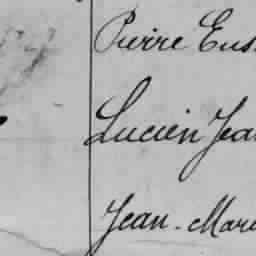 Pierre Eus
Lucien Jea
Jean-Mari